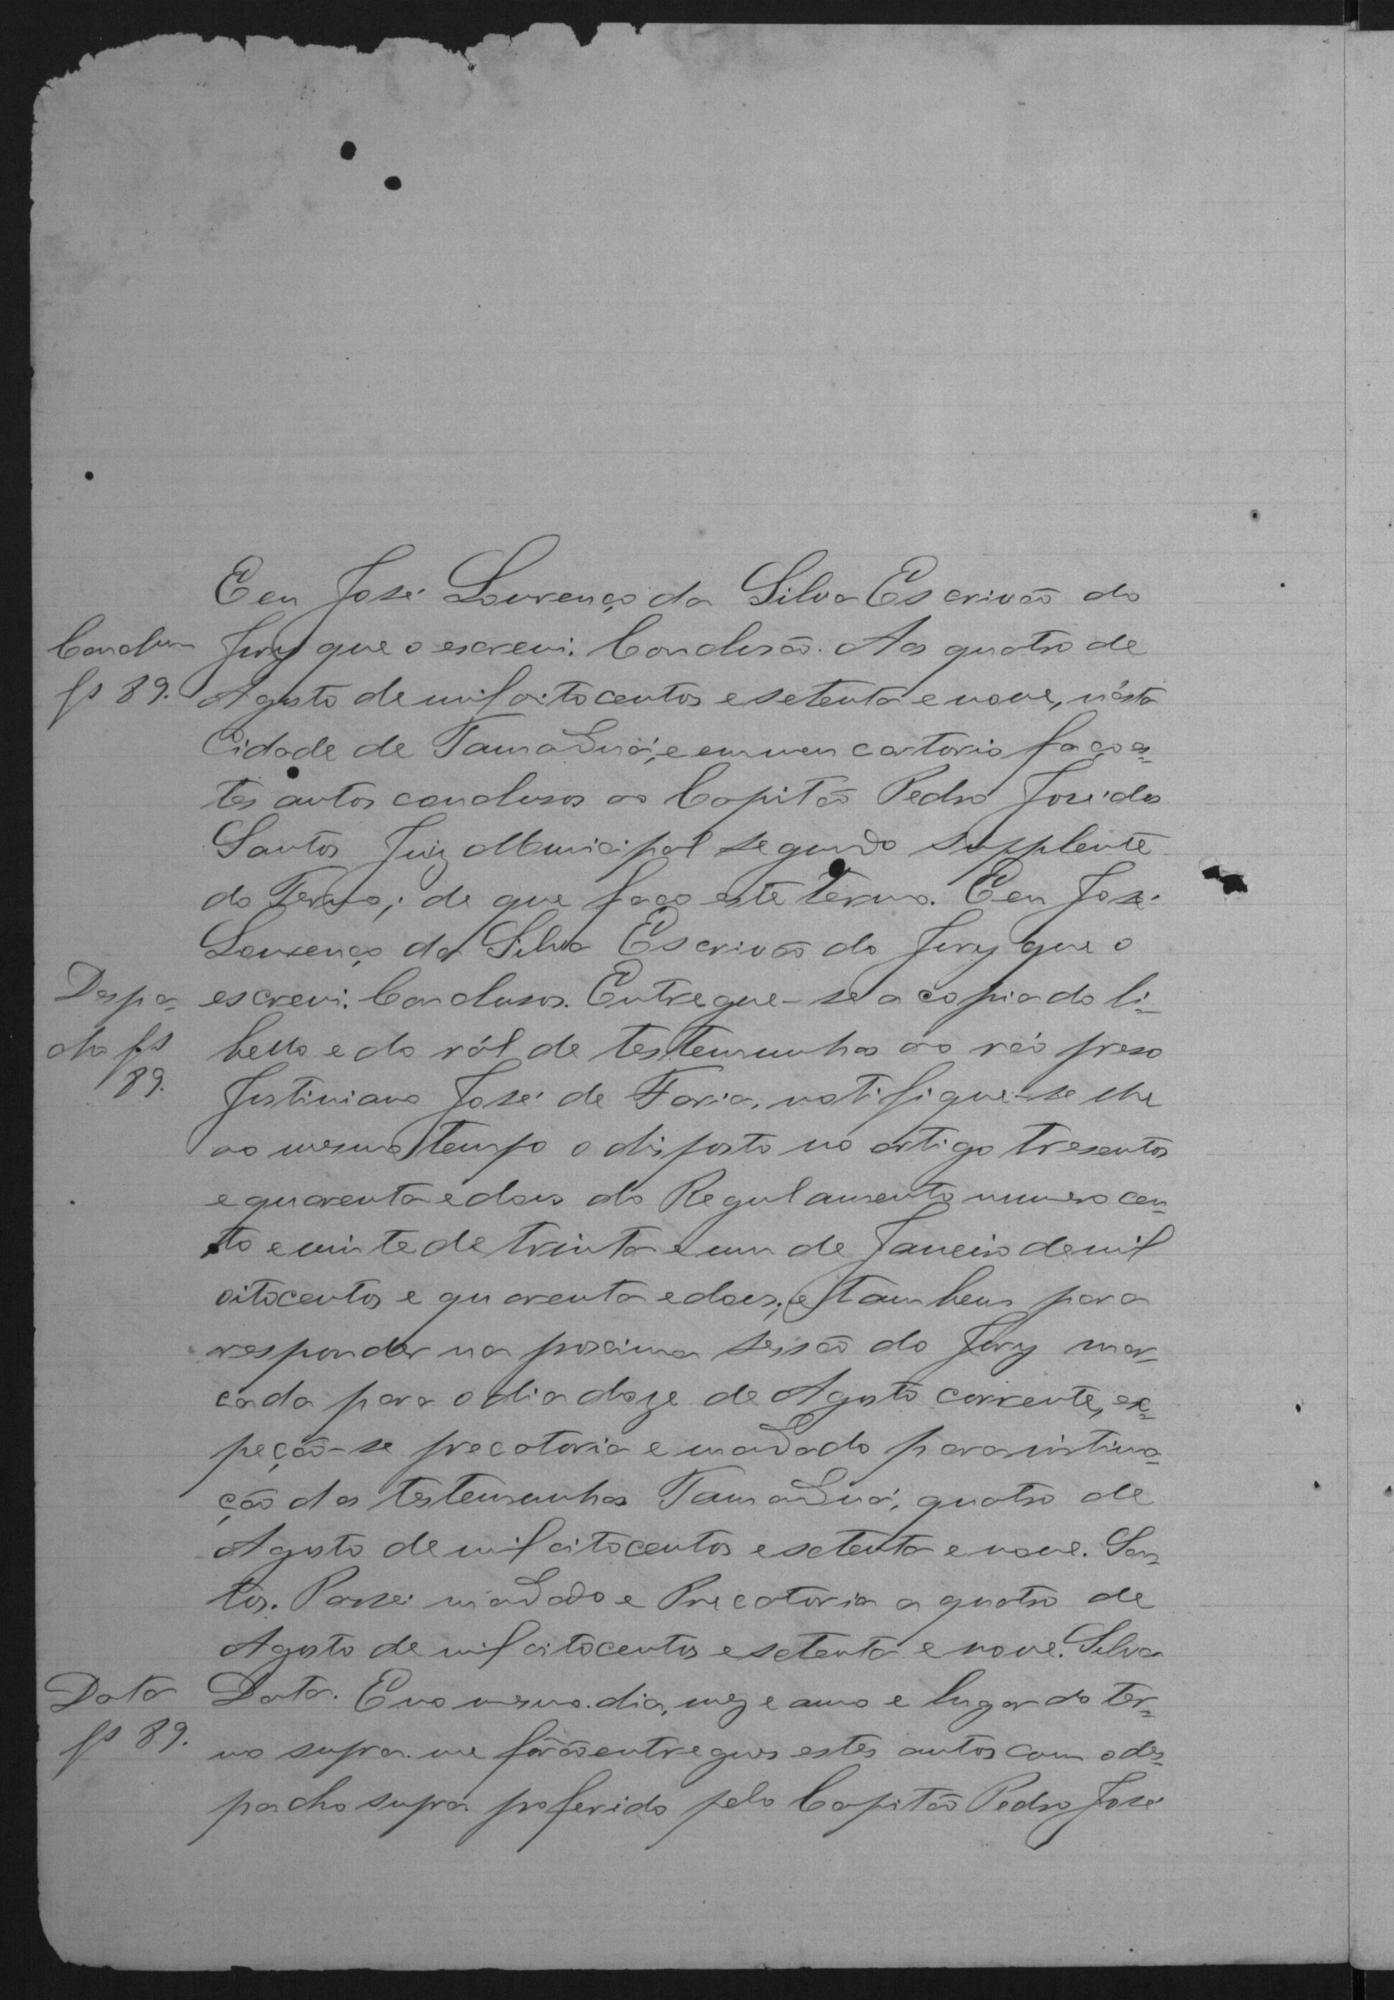 E eu José Lourenço da Silva Escrivão do
Conclusão
fs 89.
Jury que o escrevi. Conclusão. Aos quatro de
Agosto de mil oitocentos e setenta e nove, n'ésta
Cidade de Tamanduá, e em meu cartorio faço es-
tes autos conclusos ao Capitão Pedro José dos
Santos Juiz Municipal segundo supplente
do Termo; de que faço este termo. E eu José
Lourenço da Silva Escrivão do Jury que o
Despa-
cho fs
89.
escrevi. Conclusos. Entregue-se a copia do li-
bello e do ról de testemunhas ao réo preso
Justiniano José de Faria, notifique-se lhe
ao mesmo tempo o disposto no artigo tresentos
e quarenta e dois do Regulamento numero cen-
to e vinte de trinta e um de Janeiro de mil
oitocentos e quarenta e dois, e tambem para
responder na proxima sessão do Jury mar-
cada para o dia doze de Agosto corrente, ex-
peção-se precatoria e mandado para intima-
ção das testemunhas Tamanduá, quatro de
Agosto de mil oitocentos e setenta e nove. San-
tos. Passei mandado e Precatoria a quatro de
Agosto de mil oitocentos e setenta e nove. Silva
Data
fs 89.
Data. E no mesmo dia, mez e anno e lugar do ter-
mo supra me fôrão entregues estes autos com o des-
pacho supra proferido pelo Capitão Pedro José